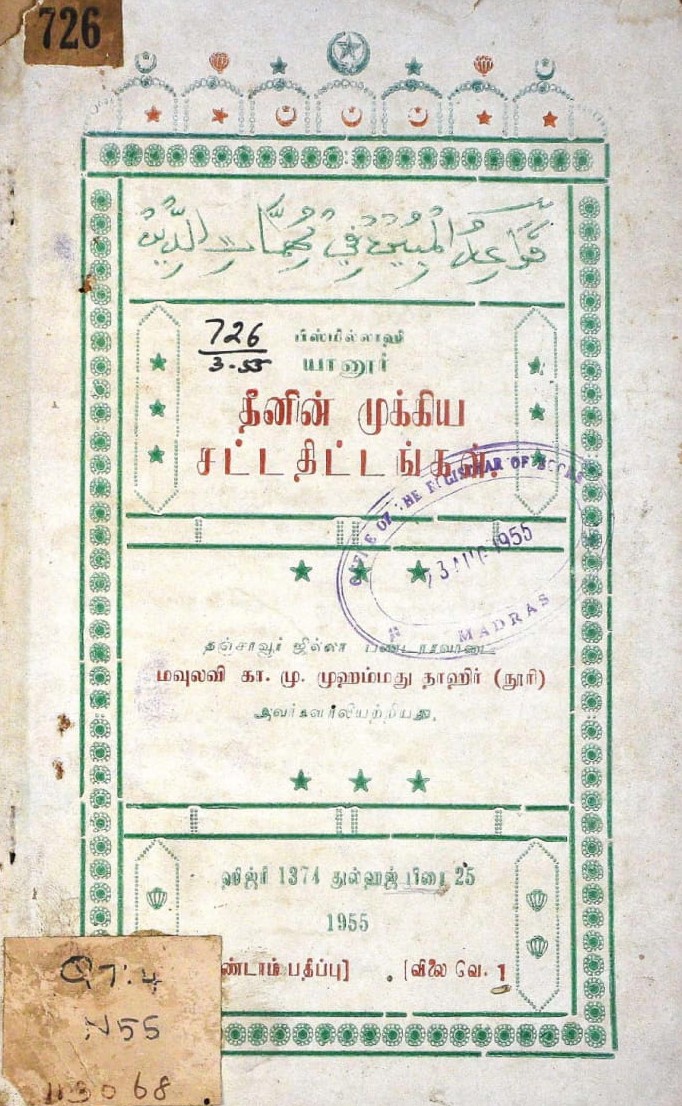 726
قَوَاعِدُ الْمُبِيْنْ فِي مُهِمَّاتِ الدِّيْنْ
726
3-55
பிஸ்மில்லாஹி
யானூர்
தீனின் முக்கிய
சட்டதிட்டங்கள்.
OFFICE OF THE REGISTRAR OF BOOKS
1955
MADRAS
தஞ்சாவூர் ஜில்லா
மவுலவி கா. மு. முஹம்மது தாஹிர் (நூரி)
அவர்களாலியற்றியது.
ஹிஜ்ரி 1374 துல்ஹஜ் பிறை 25
1955
ண்டாம் பதிப்பு] [விலை வே. 1
Q7:4
N55
113068